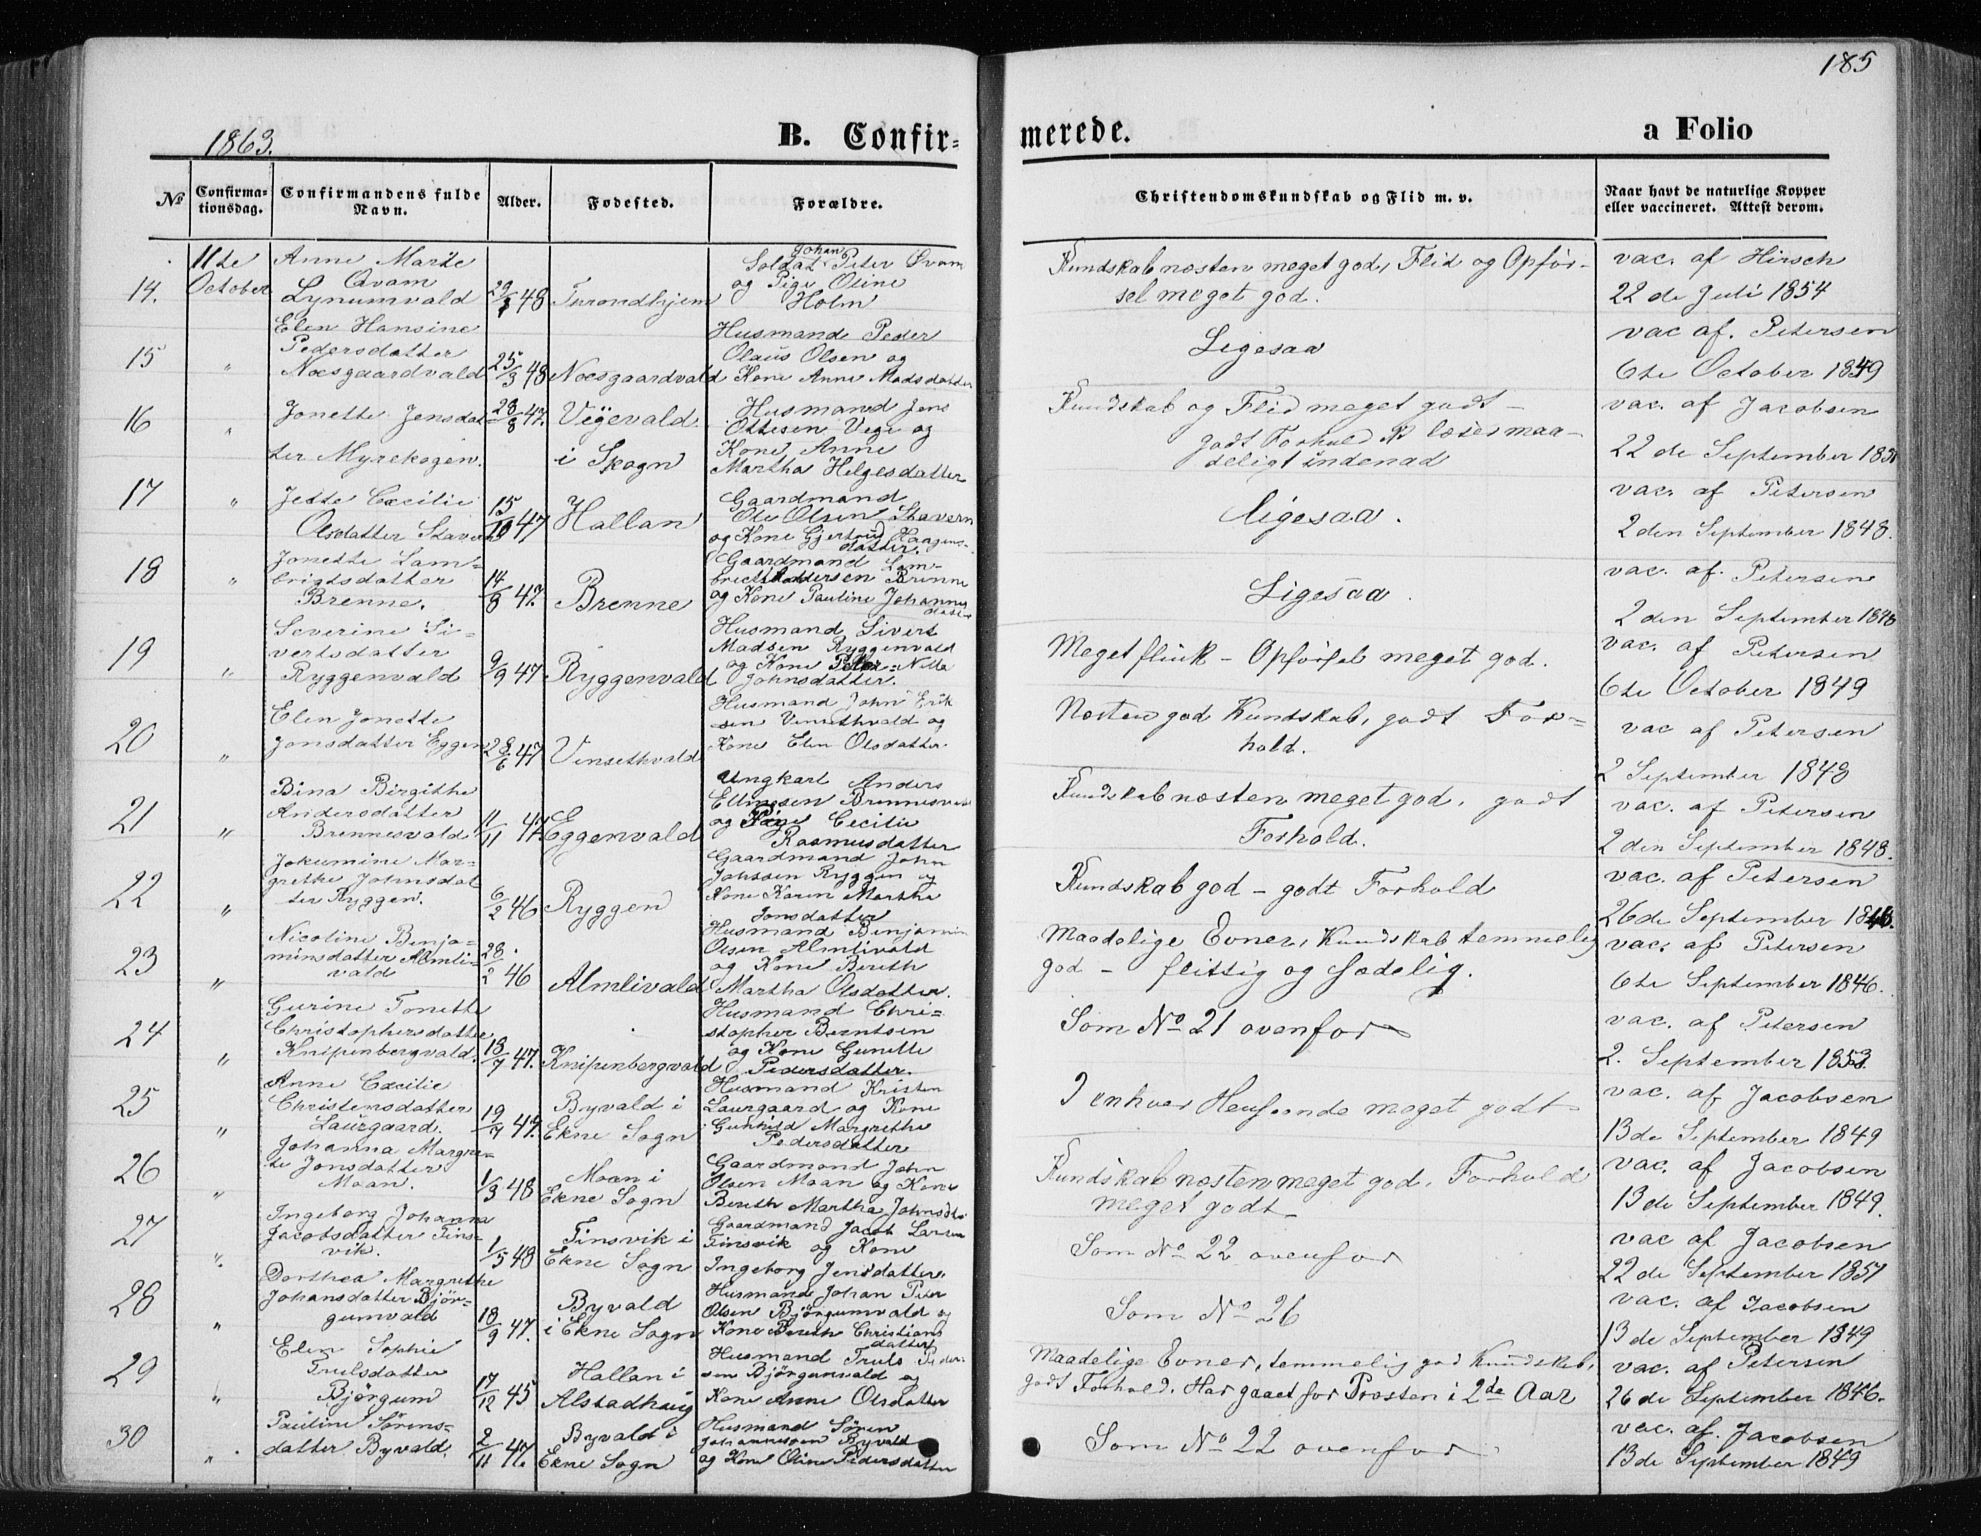 185
1863.
B. Confir-
merede.
a Folio
No
Confirma-
tionsdag.
Confirmandens fulde
Navn.
Alder.
Fødested.
Forældre.
Christendomskundskab og Flid m. v.
Naar havt de naturlige Kopper
eller vaccineret. Attest derom.
14.
11te
October
Anne Marie
Qvam
Lynumvald
29/1 48
Throndhjem
Johan
Soldat Peter Qvam
og Pige Oline
Holm
Kundskab næsten meget god, Flid og Opfør-
sel meget god.
vac. af Hirsch
22de Juli 1854
15
"
Elen Hansine
Pedersdatter
Næsgaardvald
25/3 48
Næsgaardvald
Husmand Peder
Olaus Olsen og
Kone Anne Madsdatter
Ligesaa
vac af. Petersen
6te October 1849
16
"
Jonette Jensdat-
ter Myrekogen.
28/8 47.
Vejevald
i Skogn
Husmand Jens
Ottesen Vege og
Kone Anne
Martha Helgesdatter
Kundskab og Flid meget godt -
godt Forhold læser maa-
deligt indenad
vac. af Jacobsen
22de September 1851
17
"
Jette Cæcilie
Olsdatter Stavern
15/10 47
Hallan
Gaardmand
Ole Olsen Stavern
og Kone Gjertrud Haagens-
datter.
Ligesaa.
vac. af Petersen
2den September 1848.
18
"
Jonette Lam-
brigtsdatter
Brenne.
14/8 47.
Brenne
Gaardmand Lam-
brect Andersen Brenne
og Kone Pauline Johannes
datter
Ligesaa.
vac. af. Petersen
2den September 1848
19
"
Severine Si-
vertsdatter
Ryggenvald
9/9 47
Ryggenvald
Husmand Sivert
Madsen Ryggenvald
og Kone Peter-Nella
Johnsdatter.
Meget flink - Opførsel meget god.
vac. af Petersen
6te October 1849
20
"
Elen Jonette
Jonsdatter Eggen
28/6 47
Vinsethvald
Husmand John Erik
sen Vinsethvald og
Kone Elen Olsdatter
Næsten god Kundskab, godt For-
hold.
vac af Petersen
2 September 1848
21
"
Bina Birgithe
Andersdatter
Brennesvald
11/11 47.
Eggenvald
Ungkarl Anders
Ellingsen Brennesvald
og Pige Cecilie
Rasmusdatter
Kundskab næsten meget god, godt
Forhold.
vac. af Petersen
2den September 1848.
22
"
Jokumine Mar-
grethe Johnsdat
ter Ryggen.
6/2 46
Ryggen
Gaardmand John
Johssen Ryggen og
Kone Karen Martha
Jonsdatter
Kundskab god - godt Forhold
vac. af Petersen
26de September 1846.
23
"
Nicoline Benja-
minsdatter Almli-
vald
28/2 46
Almlivald
Husmand Benjamin
Olsen Almlivald
og Kone Bereth
Martha Olsdatter.
Maadelige Evner, Kundskab temmelig
god - flittig og sædelig.
vac. af Petersen
6te September 1846.
24
"
Gurine Tonette
Christophersdatter
Knipenbergvald.
18/7 47.
Knipenbergvald
Husmand Chri-
stopher Berntsen
og Kone Gunelle
Pedersdatter.
Som No 21 ovenfor
vac. af Petersen
2. September 1853.
25
"
Anne Cæcilie
Christensdatter
Laurgaard.
19/7 47.
Byvald i
Ekne Sogn
Husmand Kristen
Laurgaard og Kone
Gunhild Margrethe
Pedersdatter
I enhver Henseende meget godt
vac. af Jacobsen
13de September 1849
26
"
Johanna Margre-
te Jonsdatter
Moan.
1/3 48
Moan i
Ekne Sogn
Gaardmand John
Olsen Moan og Kone
Bereth Martha Johnsdtr
Kundskab næsten meget god, Forhold
meget godt
vac. af Jacobsen
13de September 1849.
27
"
Ingeborg Johanna
Jacobsdatter Fins-
vik.
1/5 48
Finsvik i
Ekne Sogn
Gaardmand Jacob Larsen
Finsvik og Kone
Ingeborg Jensdatter.
Som No 22 ovenfor
vac af Jacobsen
22de September 1851
28
"
Dorthea Margrethe
Johansdatter Bjør-
gumvald
18/9 47.
Byvald
i Ekne Sogn
Husmand Johan Peter
Olsen Bjørgumvald og
Kone Bereth Christians
datter
Som No 26
vac. af Jacobsen
13de September 1849
29
"
Elen Sophie
Trulsdatter
Bjørgum
17/12 45
Hallan i
Alstadhaug
Husmand Truls Peder-
sen Bjørgumvald og
Kone Anne Olsdatter
Maadelige Evner, temmelig god Kundskab,
godt Forhold. Har gaaet for Præsten i 2de Aar
vac. af Petersen
26de September 1846.
30
"
Pauline Sørens-
datter Byvald.
2/11 47.
Byvald i
Ekne Sogn
Husmand Søren
Johannesen Byvald
og Kone Oline Pedersdatter
Som No 22 ovenfor
vac. af. Jacobsen
13de September 1849